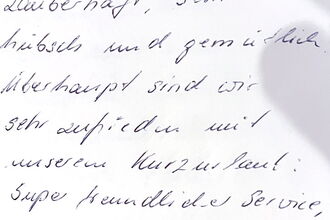 zauberhaft, sehr
hübsch und gemütlich.
Überhaupt sind wir
sehr zufrieden mit
unserem Kurzurlaub:
Super freundlicher Service,